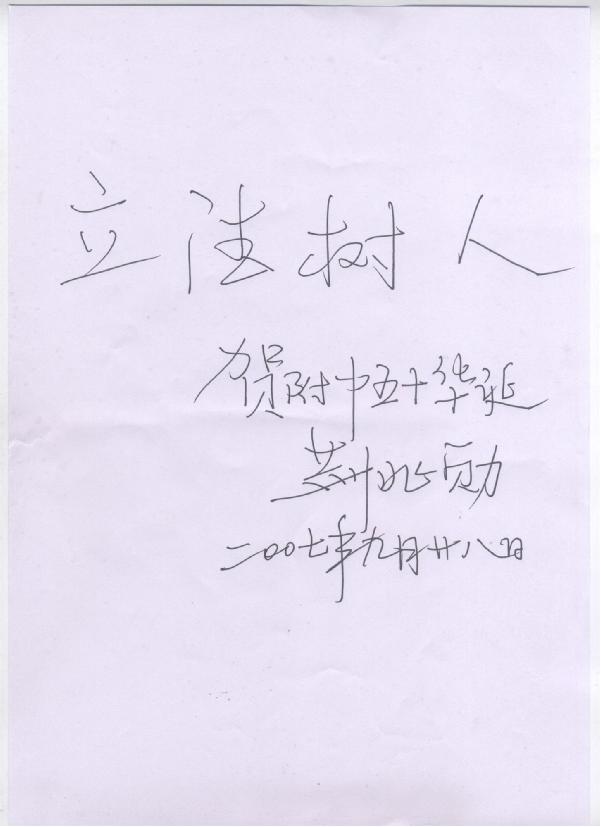 立法树人
贺附中五十华诞
二〇〇七年九月廿八日